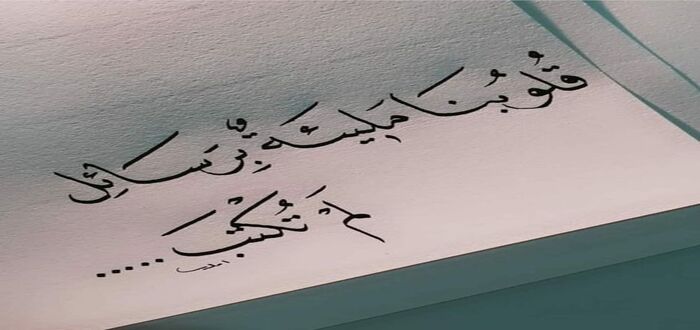 قُلوبُنا مَليئة بِرَسَائِل
لم تُكتب.....